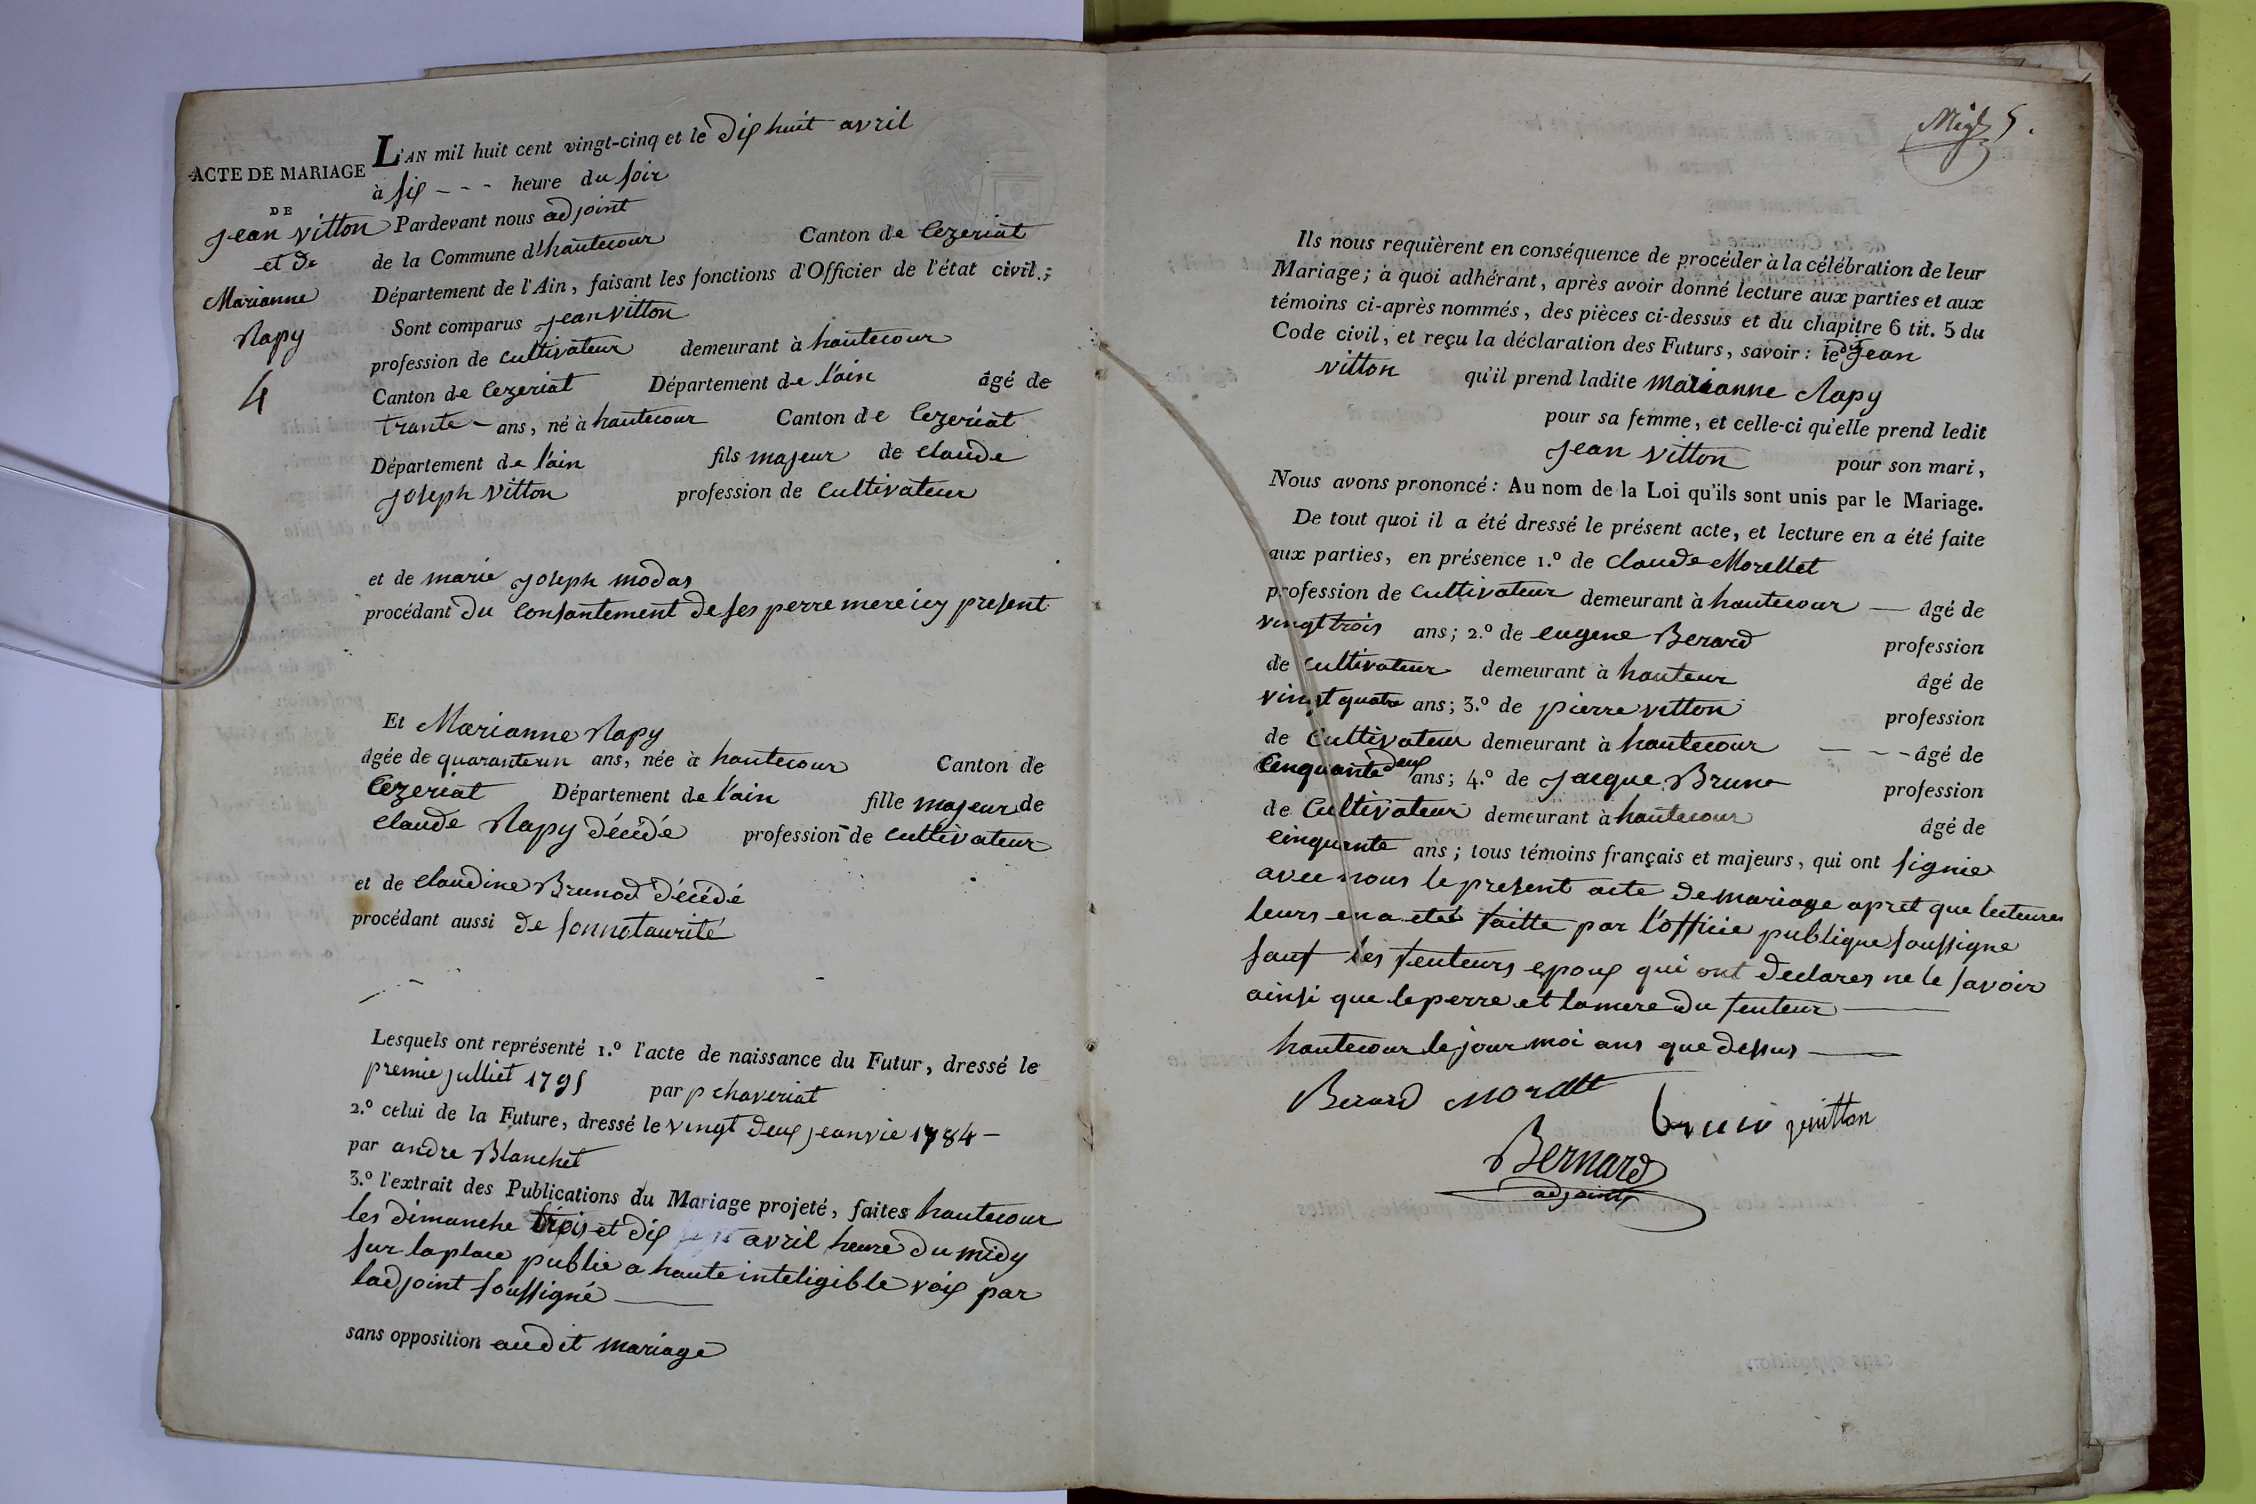 L'AN mil huit cent vingt-cinq et le dix huit avril
ACTE DE MARIAGE
à six - - - heure du soir
DE
Jean vitton
et de
Marianne
Rapy
4
Pardevant nous adjoint
de la Commune d'hautecour Canton de Cezeriat
Département de l'Ain, faisant les fonctions d'Officier de l'état civil.;
Sont comparus Jean vitton
profession de cultivateur demeurant à hautecour
Canton de Cezeriat Département de l'ain âgé de
trante - ans, né à hautecour Canton de Cezeriat
Département de l'ain fils majeur de claude
Joseph vitton profession de cultivateur
et de marie Joseph modas
procédant du consantement de ses perre mere icy present
Et Marianne Rapy
âgée de quaranteun ans, née à hautecour Canton de
Cezeriat Département de l'ain fille majeur de
claude Rapy décédé profession de cultivateur
et de claudine Brunod décédé
procédant aussi de sonnotaurité
Lesquels ont représenté 1.º l'acte de naissance du Futur, dressé le
premie julliet 1795 par p chaveriat
2.º celui de la Future, dressé le vingt deux jeanvie 1784 -
par andre Blanchet
3.º l'extrait des Publications du Mariage projeté, faites hautecour
les dimanche trois et dix avril heure du midy
sur la place publie a haute inteligible voix par
ladjoint soussigné
sans opposition audit mariage
5.
Ils nous requièrent en conséquence de procéder à la célébration de leur
Mariage; à quoi adhérant, après avoir donné lecture aux parties et aux
témoins ci-après nommés, des pièces ci-dessus et du chapitre 6 tit. 5 du
Code civil, et reçu la déclaration des Futurs, savoir: ledit Jean
vitton qu'il prend ladite Marianne Rapy
pour sa femme, et celle-ci qu'elle prend ledit
Jean vitton pour son mari,
Nous avons prononcé: Au nom de la Loi qu'ils sont unis par le Mariage.
De tout quoi il a été dressé le présent acte, et lecture en a été faite
aux parties, en présence 1.º de claude Morellet
profession de cultivateur demeurant à hautecour — âgé de
vingt trois ans; 2.º de eugene Berard profession
de cultivateur demeurant à hauteur âgé de
vingt quatre ans; 3.º de pierre vitton profession
de cultivateur demeurant à hautecour - - - âgé de
cinquante deux ans; 4.º de Jacque Bruno profession
de cultivateur demeurant à hautecour âgé de
cinquante ans; tous témoins français et majeurs, qui ont signie
avec nous le present acte de mariage apret que lecteures
leurs en a etés faitte par l'officie publique soussigne
sauf les feuteurs epoux qui ont declares ne le savoir
ainsi que le perre et la mere du feuteur
hautecour le jour moi ans que dessus
Berard Morellet
Bernard
adjoint